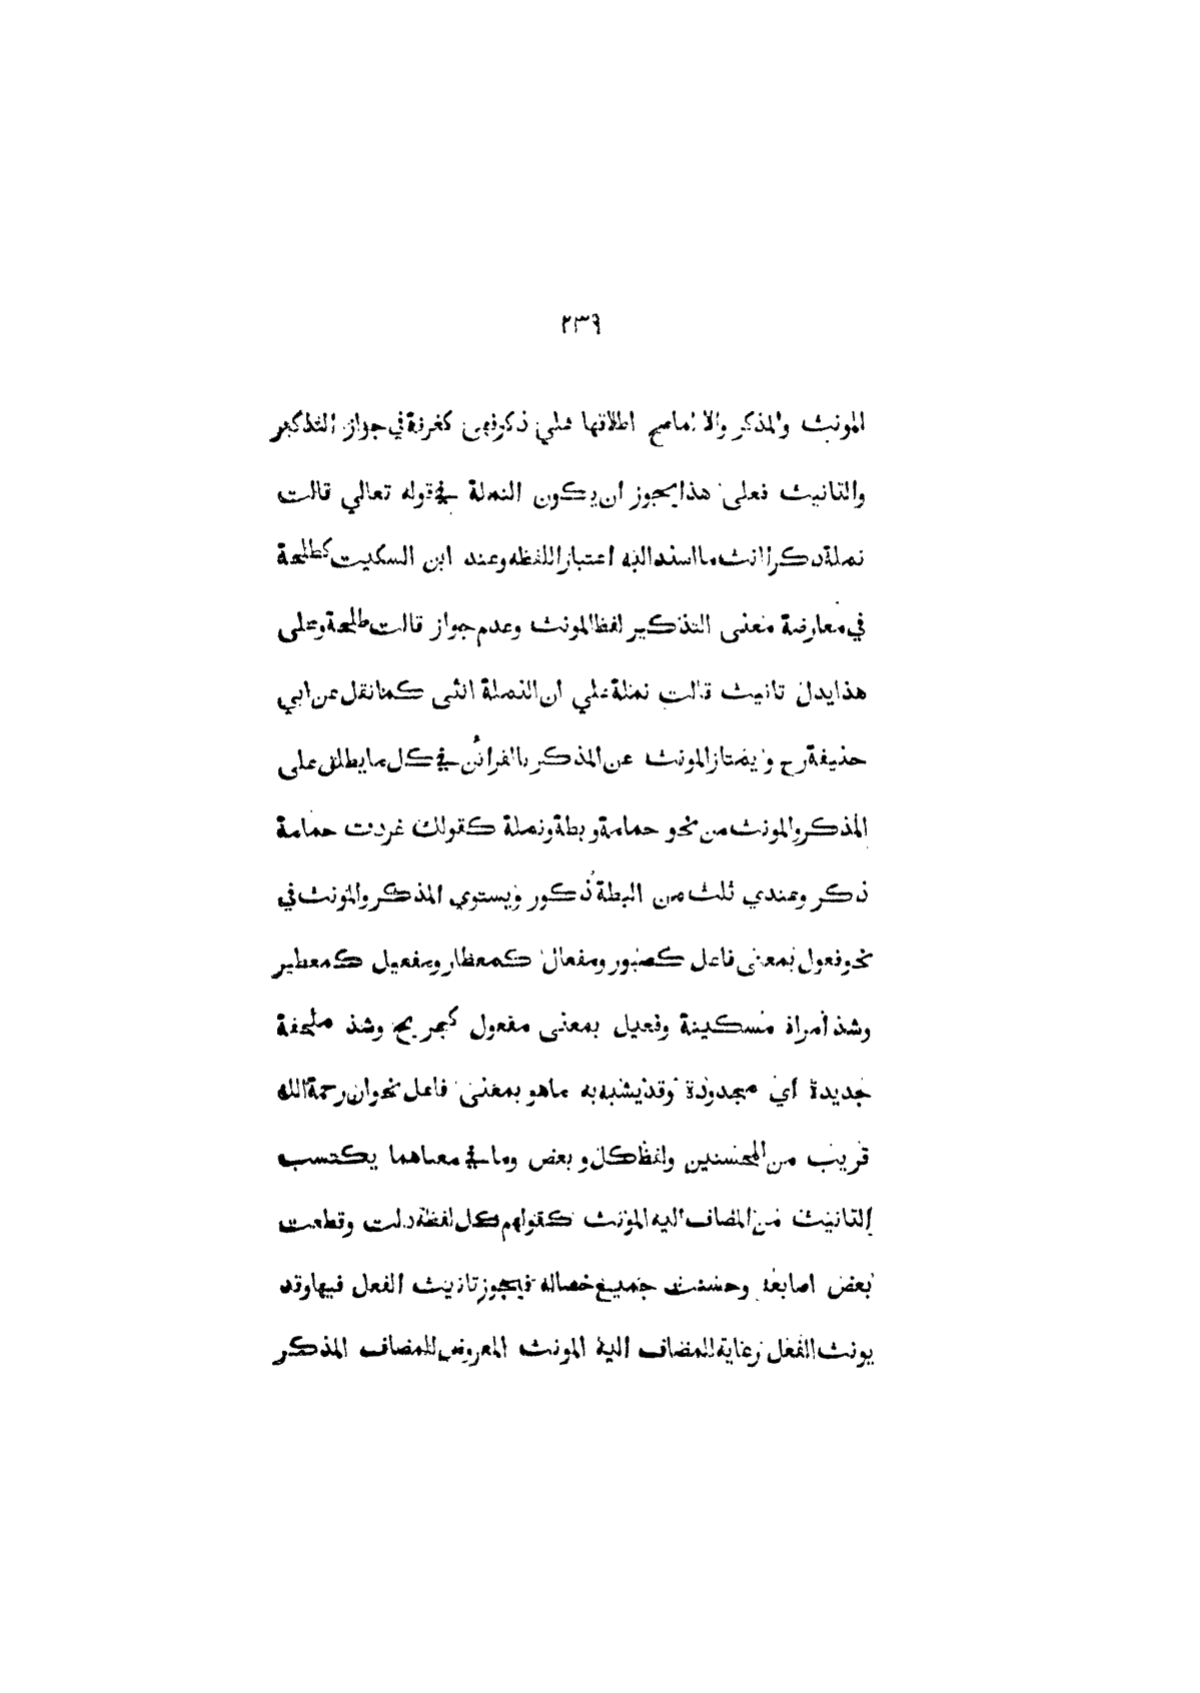 ٢٣٩
المونث والمذكر والا لماصح اطلاقها على ذكر فهي كغرفة في جواز التذكير
والتانيث فعلى هذا يجوز ان يكون النملة في قوله تعالي قالت
نملة ذكرا انث ما اسند اليه اعتبار اللفظه وعند ابن السكيت كطلحة
في معارضة معنى التذكير لفظ المونث وعدم جواز قالت طلحة وعلى
هذا يدل تانيث قالت نملة علي ان النملة انثى كما نقل عن ابي
حنيفة رح ويمتاز المونث عن المذكر بالقرائن في كل ما يطلق على
المذكر والمونث من نحو حمامة وبطة ونملة كقولك غردت حمامة
ذكر وعندي ثلث من البطة ذكور ويستوي المذكر والمونث في
نحو فعول بمعنى فاعل كصبور ومفعال كمعطار ومفعيل كمعطير
وشذ امراة مسكينة وفعيل بمعنى مفعول كجريح وشذ ملحفة
جديدة اي مجدودة وقد يشبه به ماهو بمعنى فاعل نحو ان رحمة الله
قريب من المحسنين ولفظ كل و بعض وما في معناهما يكتسب
التانيث من المضاف اليه المؤنث كقولهم كل لفظة دلت وقطعت
بعض اصابعه وحسنت جميع خصاله فيجوز تانيث الفعل فيها وقد
يونث الفعل رعاية للمضاف اليه المونث المعروض للمضاف المذكر